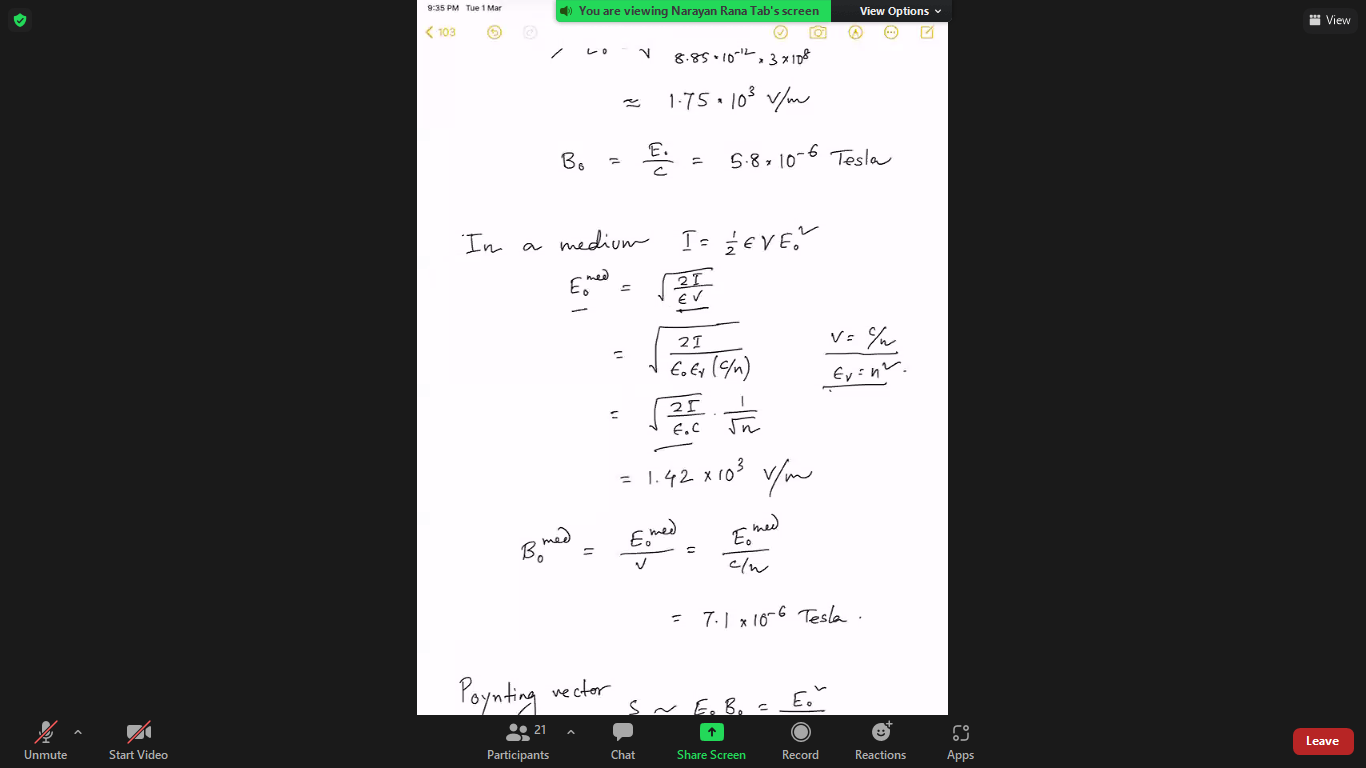 9:35 PM Tue 1 Mar
You are viewing Narayan Rana Tab's screen
View Options
View
103
8.85×10⁻¹² × 3×10⁸
≈ 1.75×10³ V/m
B₀ = E₀/c = 5.8×10⁻⁶ Tesla
In a medium I = ½ ϵ V E₀²
E₀^med = √(2I/ϵV)
= √(2I/ϵ₀ϵᵣ(c/n))
V = c/n
ϵᵣ = n².
= √(2I/ϵ₀c) · 1/√n
= 1.42 ×10³ V/m
B₀^med = E₀^med/V = E₀^med/c/n
= 7.1 ×10⁻⁶ Tesla.
Poynting vector
S ~ E₀ B₀ = E₀²
Unmute
Start Video
Participants
21
Chat
Share Screen
Record
Reactions
Apps
Leave